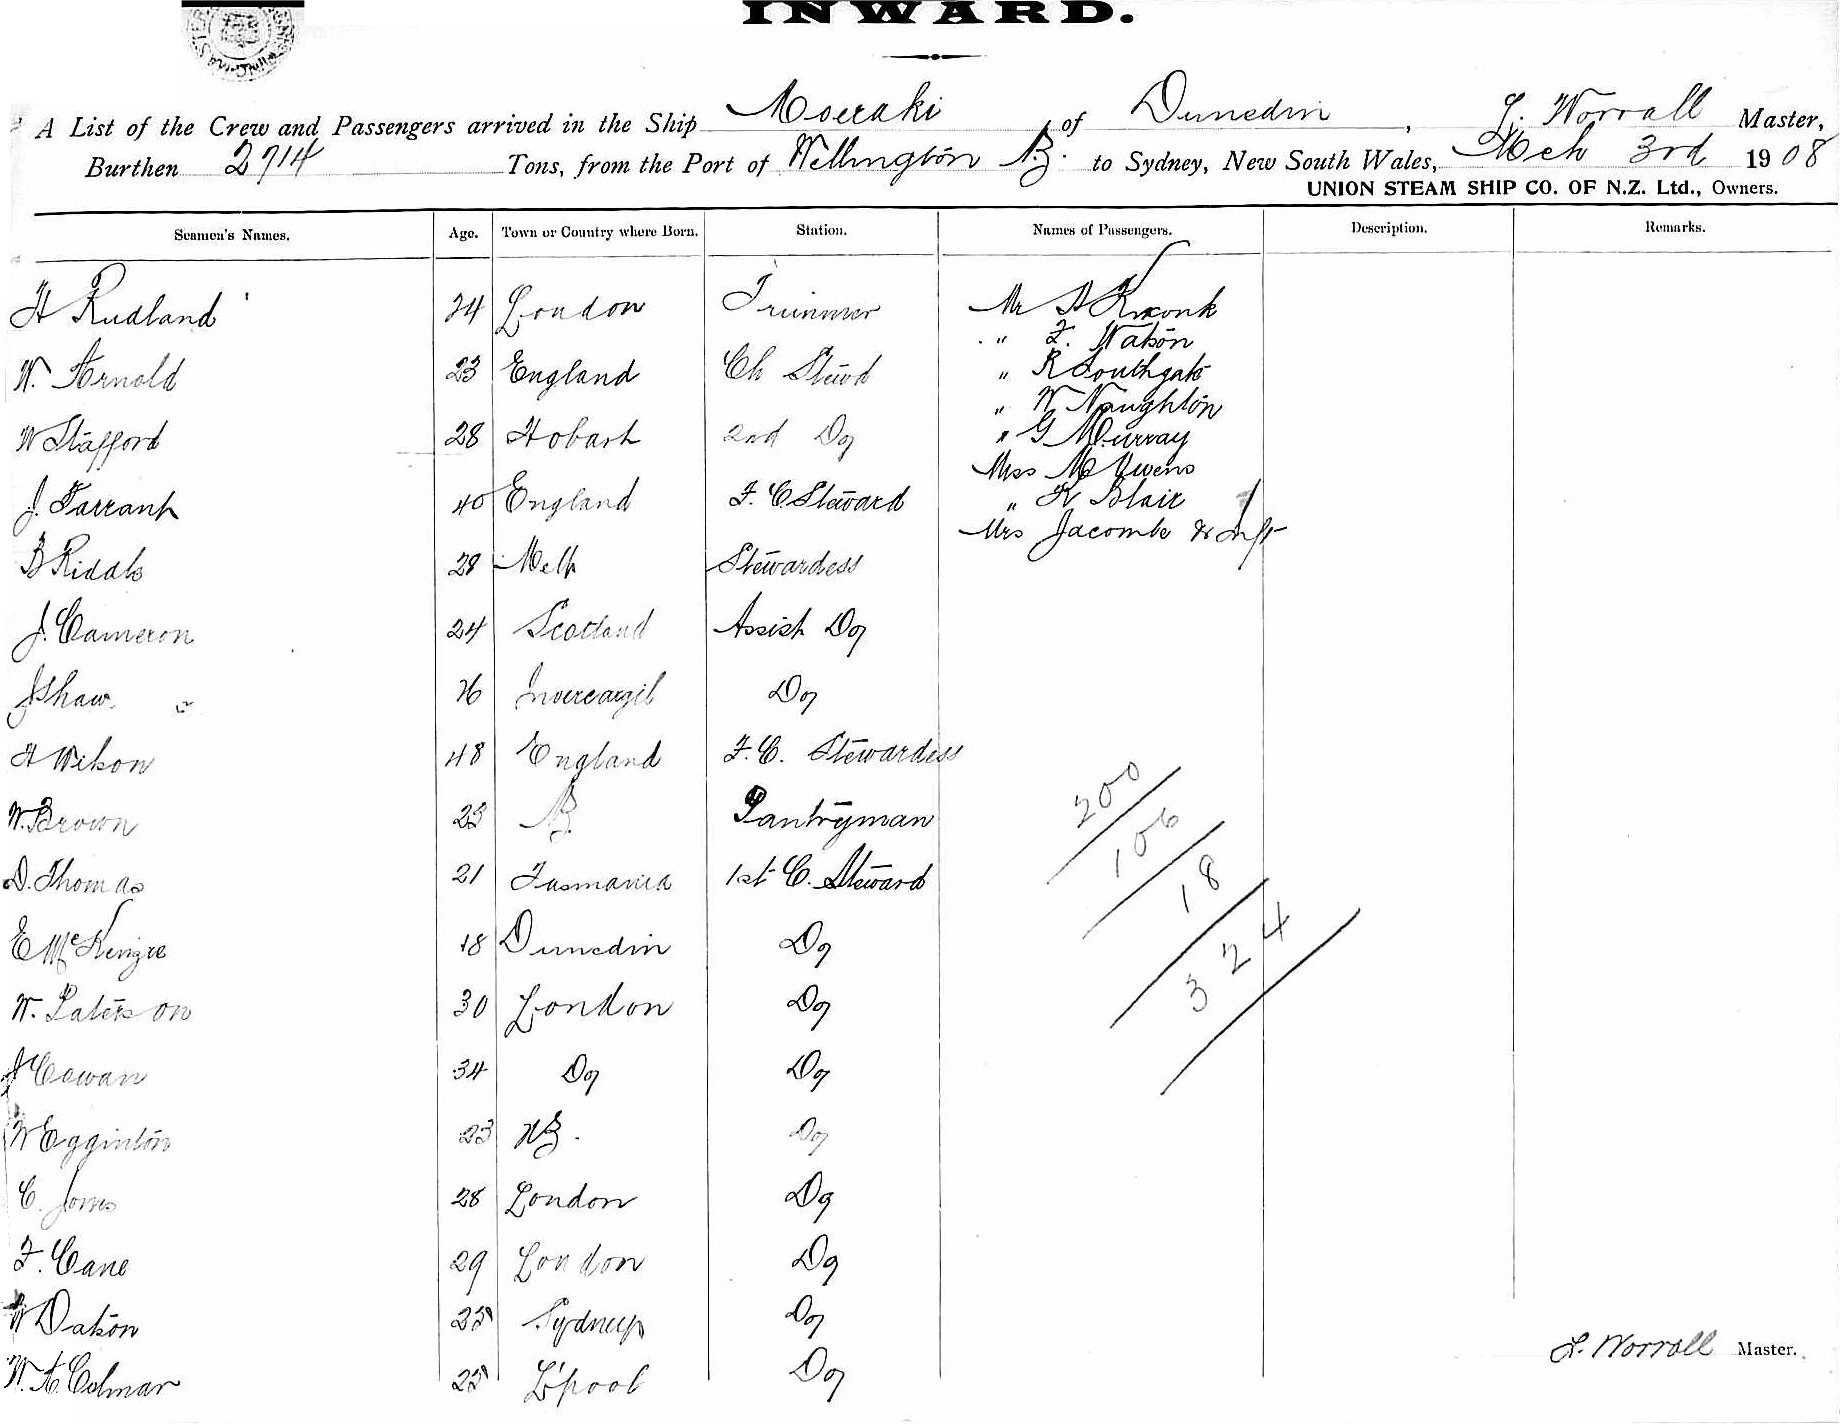 INWARD.
A List of the Crew and Passengers arrived in the Ship Moeraki of Dunedin, Worrall Master,
Burthen 2714 Tons, from the Port of Wellington N.Z. to Sydney, New South Wales, Mch 3rd 1908
UNION STEAM SHIP CO. OF N.Z. Ltd., Owners.
Seamen's Names. Age. Town or Country where Born. Station. Names of Passengers. Description. Remarks.
H Rudland 24 London Trimmer Mr
" F. Watson
W. Arnold 23 England Ch Stewd " R Southgate
" W Naughton
W Stafford 28 Hobart 2nd Do " G Murray
Miss M Owens
J. Tarrant 40 England F. C. Steward " K Blair
Mrs Jacombe & Inft
B Riddle 28 Melb Stewardess
J. Cameron 24 Scotland Assist Do
J Shaw Invercargil Do
H Wilson 48 England F. C. Stewardess
W. Brown 23 NZ Pantryman
D. Thomas 21 Tasmania 1st C. Steward
E McKenzie 18 Dunedin Do
W. Paterson 30 London Do
J Cowan 34 Do Do
W Egginton 23 NZ. Do
C. Jones 28 London Do
F. Cane 29 London Do
W Datson Sydney Do
W. A. Colmar L'pool Do
200
106
18
324
Worrall Master.